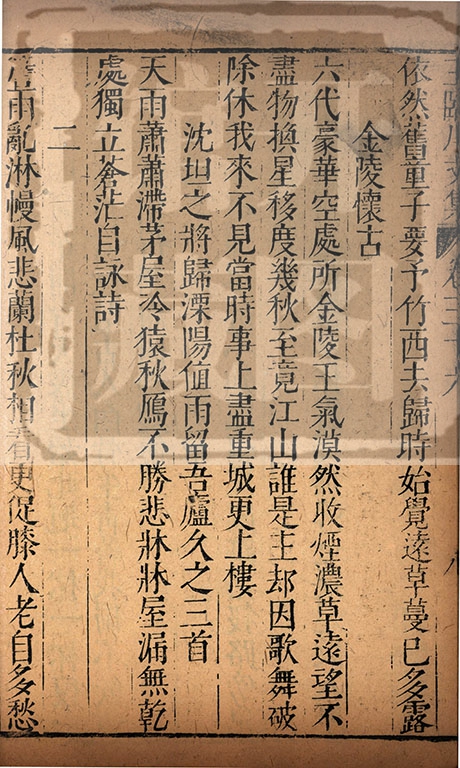 王臨川文集 卷三十六
依然舊童子要予竹西去歸時始覺遠草蔓已多露
金陵懷古
六代豪華空處所金陵王氣漠然收煙濃草遠望不
盡物換星移度幾秋至竟江山誰是主却因歌舞破
除休我來不見當時事上盡重城更上樓
沈坦之將歸溧陽值雨留吾廬久之三首
天雨蕭蕭滯茅屋冷猿秋鴈不勝悲牀牀屋漏無乾
處獨立蒼茫自詠詩
二
雨亂淋幔風悲蘭杜秋相看更促膝人老自多愁